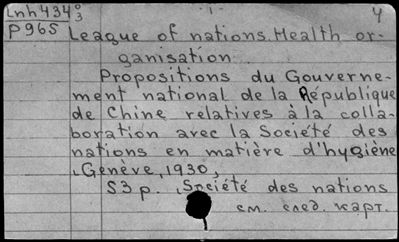 Lnh434 3/3 4
P965
League of nations. Health or-
ganisation.
Propositions du Gouverne-
ment national de la République
de Chine relatives à la colla-
boration avec la Société des
nations en matière d'hygiène
Genève, 1930,
53 p. Société des nations
см. след. карт.